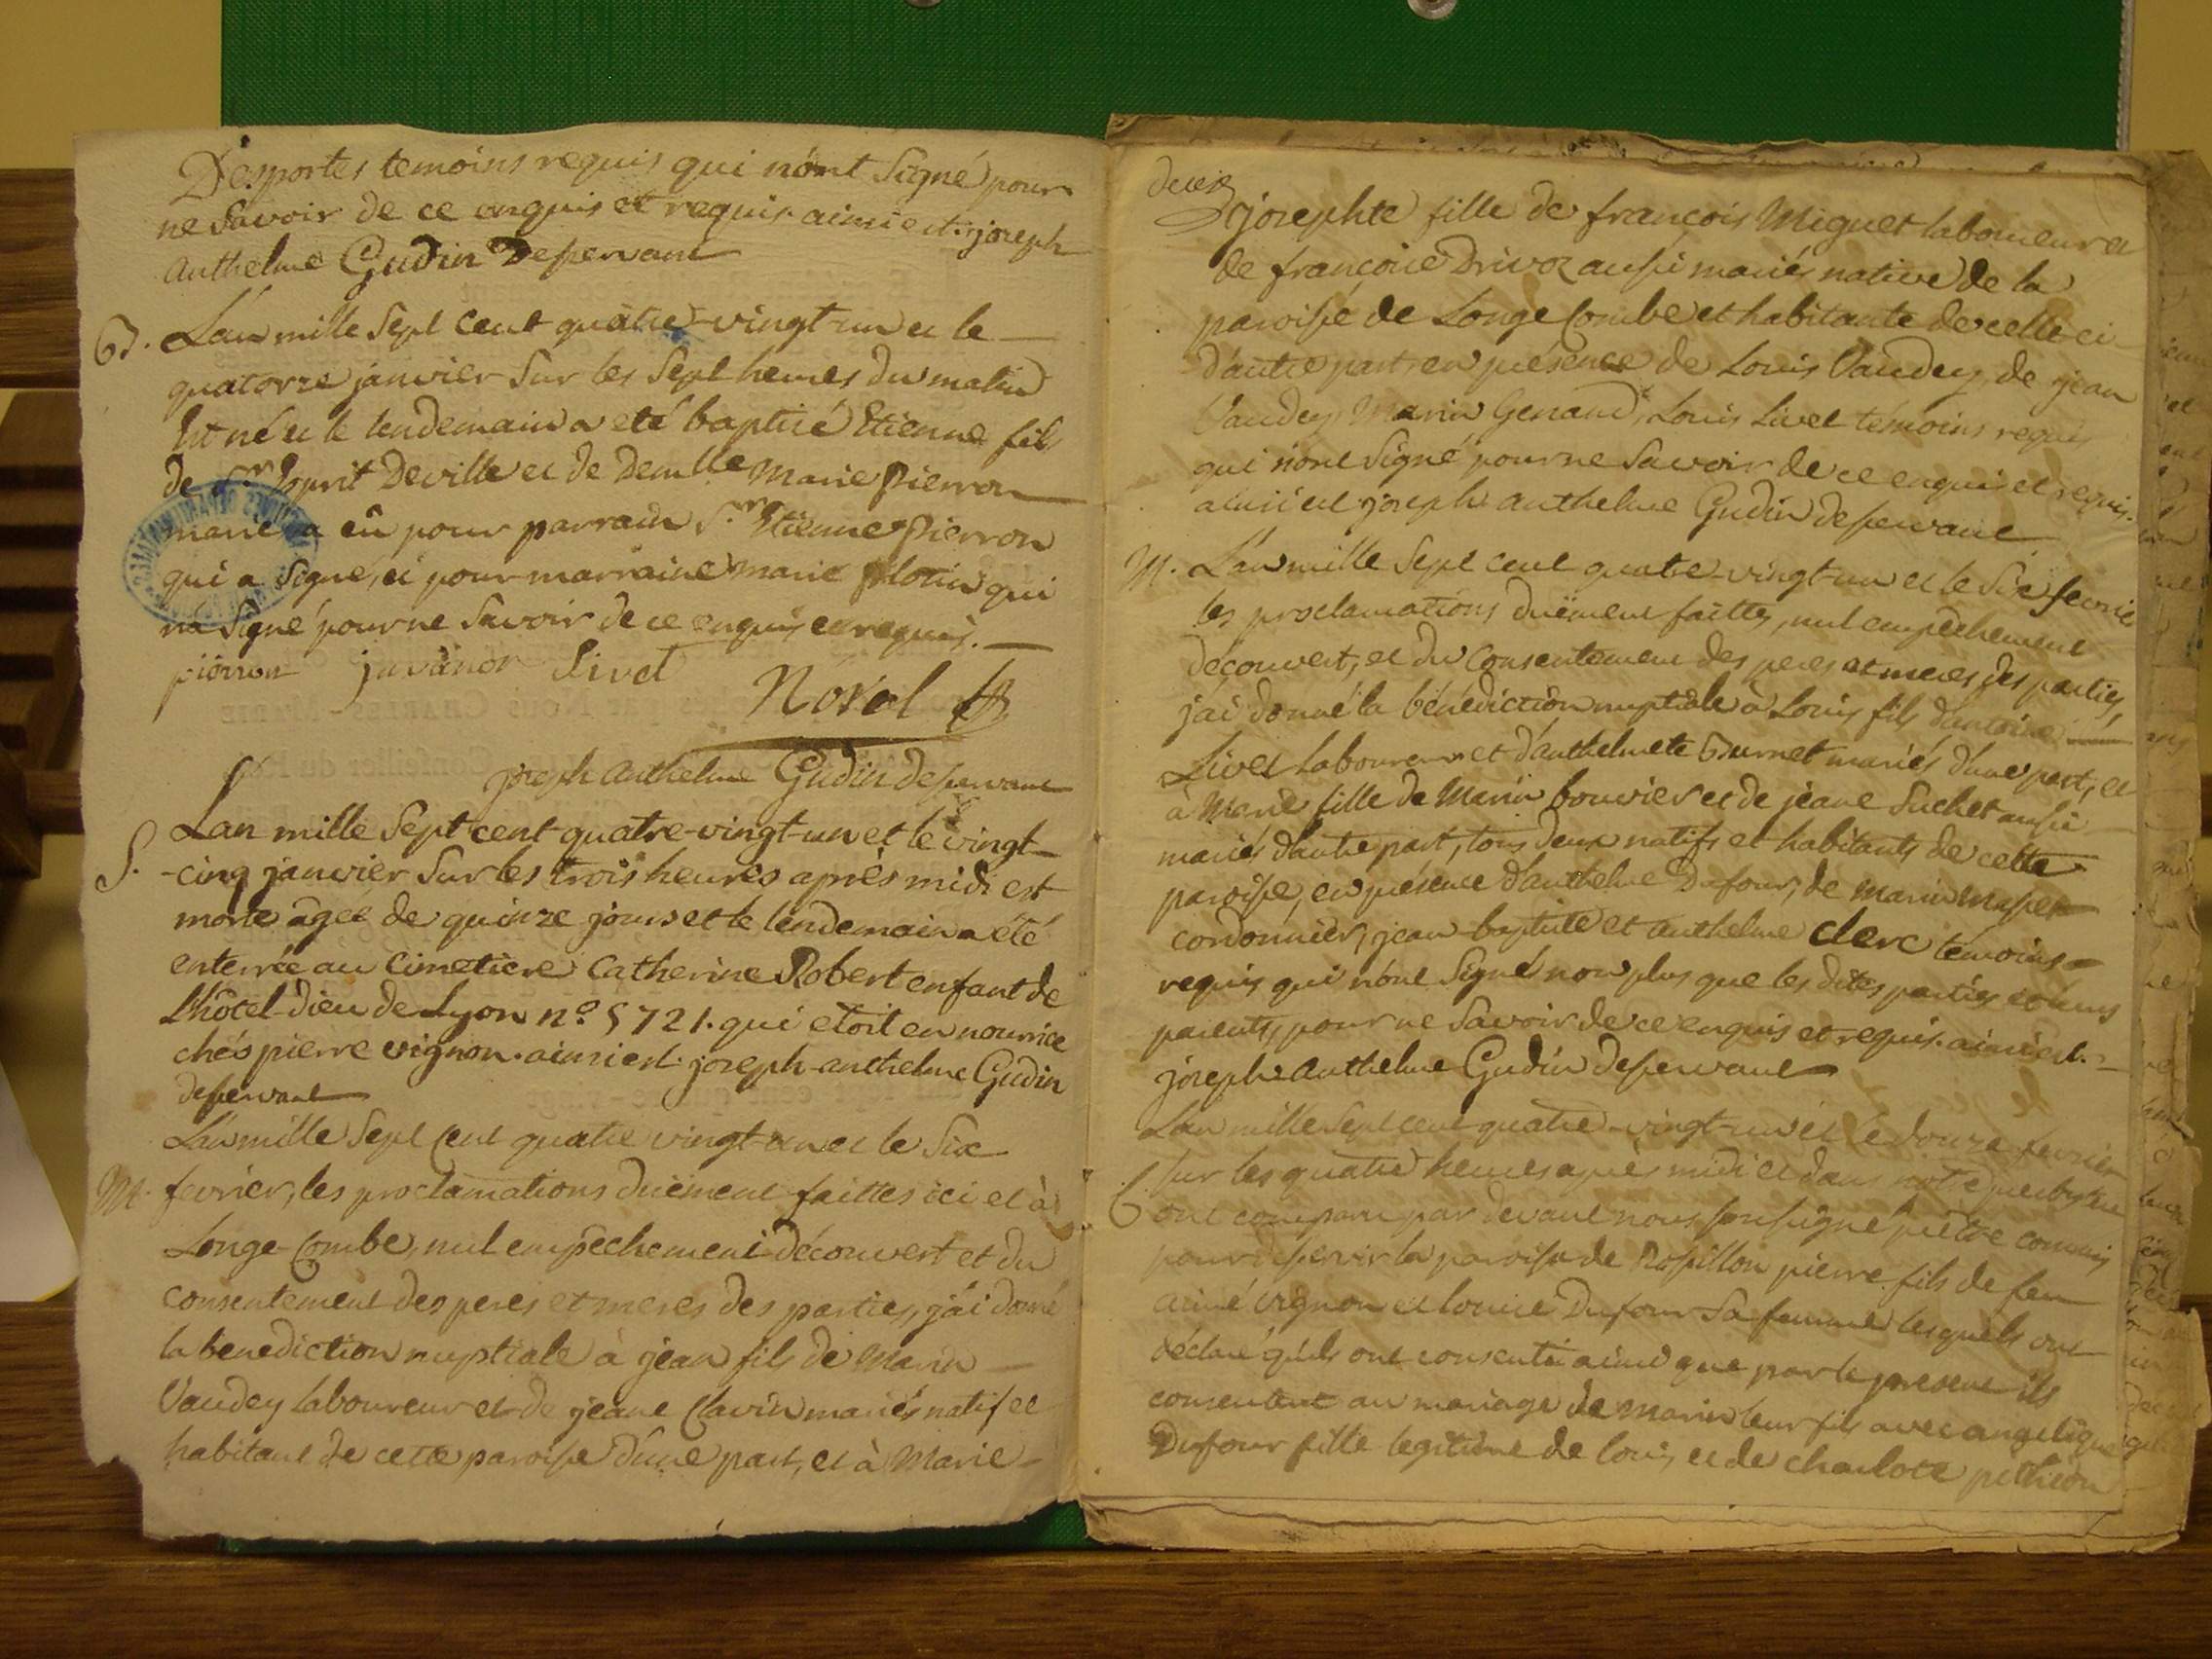 Desportes temoins requis qui n'ont Signé pour
ne Savoir de ce enquis et requis. ainsi est. joseph
Anthelme Gudin Desservant
B. L'an mille Sept cent quatre-vingt-un et le
quatorze janvier Sur les Sept heures du matin
Est né et le lendemain a eté baptisé Etienne fils
de Sr. Esprit Deville et de Demlle Marie Pierron
mariés a eû pour parrain Sr. Etienne Pierron
qui a Signé, et pour marraine Marie qui
n'a Signé pour ne Savoir de ce enquis et requis.
pierron juvanon Livet
Novel
joseph Anthelme Gudin desservant
S. L'an mille Sept cent quatre-vingt-un et le vingt-
-cinq janvier Sur les trois heures après midi est
morte agée de quinze jours et le lendemain a été
enterrée au Cimetiere Catherine Robert enfant de
L'hôtel-dieu de Lyon n.º 5721. qui etoit en nourrice
chés pierre vignon. ainsi est. joseph-anthelme Gudin
desservant
L'an mille Sept Cent quatre vingt-un et le Six
M. fevrier, les proclamations duëment faittes ici et à
Longe-Combe, nul empêchement découvert et du
consentement des peres et meres des parties, j'ai donné
la benediction nuptiale à jean fils de Marin
Vaudey laboureur et de jeane Clavin mariés natif et
habitant de cette paroisse d'une part, et à Marie-
deux
josephte fille de françois Miguet laboureur et
de françoise Drivoz aussi mariés native de la
paroisse de Longe Combe et habitante de celle-ci
d'autre part, en présence de Louis Vaudey, de jean
Vaudey, Marin Genand, Louis Livet temoins requis
qui n'ont Signé pour ne Savoir de ce enquis et requis.
ainsi est joseph anthelme Gudin desservant
M. L'an mille Sept cent quatre-vingt-un et le Six fevrier
les proclamations duëment faittes, nul empêchement
découvert, et du Consentement des peres et meres des parties,
j'ai donné la bénédiction nuptiale à Louis fils d'antoine
Livet laboureur et d'anthelmete Burnet mariés d'une part, et
à Marie fille de Marin bouvier et de jeane Suchet aussi
mariés d'autre part, tous deux natifs et habitants de cette
paroisse, en présence d'anthelme Dufour, de Marin
cordonnier, jean-baptiste et anthelme Clerc temoins
requis qui n'ont Signé non plus que les dites parties et leurs
parents, pour ne Savoir de ce enquis et requis. ainsi est.
joseph Anthelme Gudin desservant
L'an mille Sept cent quatre-vingt-un et le douze fevrier
sur les quatre heures après midi et dans notre presbytere
C. ont comparu par devant nous soussigné prêtre commis
pour desservir la paroisse de Rossillon pierre fils de feu
aimé vignon et louise Dufour Sa femme lesquels ont
déclaré qu'ils ont consenti ainsi que par le present ils
consentent au mariage de Marin leur fils avec angelique
Dufour fille legitime de louis et de charlote